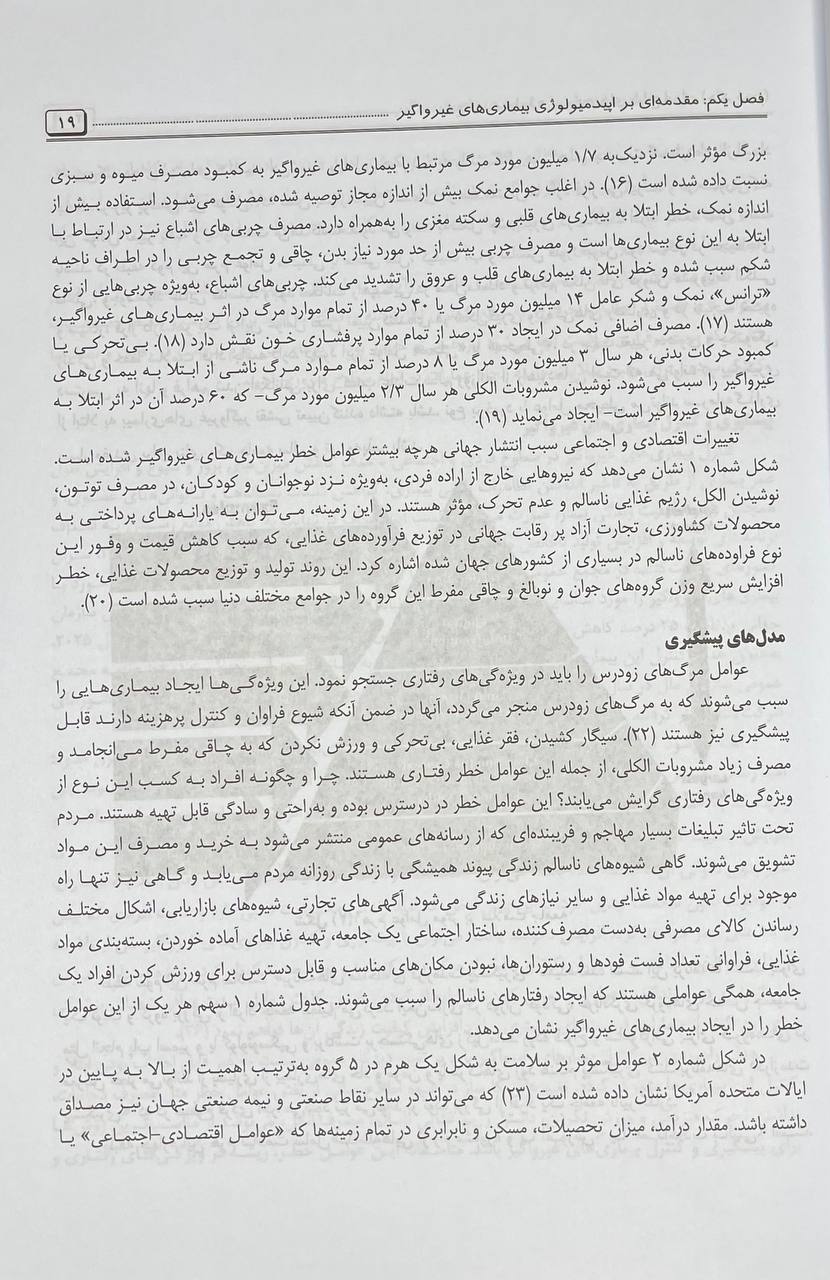 فصل یکم: مقدمه‌ای بر اپیدمیولوژی بیماری‌های غیرواگیر ........................ ۱۹
بزرگ مؤثر است. نزدیک‌به ۱/۷ میلیون مورد مرگ مرتبط با بیماری‌های غیرواگیر به کمبود مصرف میوه و سبزی
نسبت داده شده است (۱۶). در اغلب جوامع نمک بیش از اندازه مجاز توصیه شده، مصرف می‌شود. استفاده بیش از
اندازه نمک، خطر ابتلا به بیماری‌های قلبی و سکته مغزی را به‌همراه دارد. مصرف چربی‌های اشباع نیز در ارتباط با
ابتلا به این نوع بیماری‌ها است و مصرف چربی بیش از حد مورد نیاز بدن، چاقی و تجمع چربی را در اطراف ناحیه
شکم سبب شده و خطر ابتلا به بیماری‌های قلب و عروق را تشدید می‌کند. چربی‌های اشباع، به‌ویژه چربی‌هایی از نوع
«ترانس»، نمک و شکر عامل ۱۴ میلیون مورد مرگ یا ۴۰ درصد از تمام موارد مرگ در اثر بیماری‌های غیرواگیر،
هستند (۱۷). مصرف اضافی نمک در ایجاد ۳۰ درصد از تمام موارد پرفشاری خون نقش دارد (۱۸). بی‌تحرکی یا
کمبود حرکات بدنی، هر سال ۳ میلیون مورد مرگ یا ۸ درصد از تمام موارد مرگ ناشی از ابتلا به بیماری‌های
غیرواگیر را سبب می‌شود. نوشیدن مشروبات الکلی هر سال ۲/۳ میلیون مورد مرگ- که ۶۰ درصد آن در اثر ابتلا به
بیماری‌های غیرواگیر است- ایجاد می‌نماید (۱۹).
تغییرات اقتصادی و اجتماعی سبب انتشار جهانی هرچه بیشتر عوامل خطر بیماری‌های غیرواگیر شده است.
شکل شماره ۱ نشان می‌دهد که نیروهایی خارج از اراده فردی، به‌ویژه نزد نوجوانان و کودکان، در مصرف توتون،
نوشیدن الکل، رژیم غذایی ناسالم و عدم تحرک، مؤثر هستند. در این زمینه، می‌توان به یارانه‌های پرداختی به
محصولات کشاورزی، تجارت آزاد پر رقابت جهانی در توزیع فرآورده‌های غذایی، که سبب کاهش قیمت و وفور این
نوع فراوده‌های ناسالم در بسیاری از کشورهای جهان شده اشاره کرد. این روند تولید و توزیع محصولات غذایی، خطر
افزایش سریع وزن گروه‌های جوان و نوبالغ و چاقی مفرط این گروه را در جوامع مختلف دنیا سبب شده است (۲۰).
مدل‌های پیشگیری
عوامل مرگ‌های زودرس را باید در ویژه‌گی‌های رفتاری جستجو نمود. این ویژه‌گی‌ها ایجاد بیماری‌هایی را
سبب می‌شوند که به مرگ‌های زودرس منجر می‌گردد، آنها در ضمن آنکه شیوع فراوان و کنترل پرهزینه دارند قابل
پیشگیری نیز هستند (۲۲). سیگار کشیدن، فقر غذایی، بی‌تحرکی و ورزش نکردن که به چاقی مفرط می‌انجامد و
مصرف زیاد مشروبات الکلی، از جمله این عوامل خطر رفتاری هستند. چرا و چگونه افراد به کسب این نوع از
ویژه‌گی‌های رفتاری گرایش می‌یابند؟ این عوامل خطر در درسترس بوده و به‌راحتی و سادگی قابل تهیه هستند. مردم
تحت تاثیر تبلیغات بسیار مهاجم و فریبنده‌ای که از رسانه‌های عمومی منتشر می‌شود به خرید و مصرف این مواد
تشویق می‌شوند. گاهی شیوه‌های ناسالم زندگی پیوند همیشگی با زندگی روزانه مردم می‌یابد و گاهی نیز تنها راه
موجود برای تهیه مواد غذایی و سایر نیازهای زندگی می‌شود. آگهی‌های تجارتی، شیوه‌های بازاریابی، اشکال مختلف
رساندن کالای مصرفی به‌دست مصرف‌کننده، ساختار اجتماعی یک جامعه، تهیه غذاهای آماده خوردن، بسته‌بندی مواد
غذایی، فراوانی تعداد فست فودها و رستوران‌ها، نبودن مکان‌های مناسب و قابل دسترس برای ورزش کردن افراد یک
جامعه، همگی عواملی هستند که ایجاد رفتارهای ناسالم را سبب می‌شوند. جدول شماره ۱ سهم هر یک از این عوامل
خطر را در ایجاد بیماری‌های غیرواگیر نشان می‌دهد.
در شکل شماره ۲ عوامل موثر بر سلامت به شکل یک هرم در ۵ گروه به‌ترتیب اهمیت از بالا به پایین در
ایالات متحده آمریکا نشان داده شده است (۲۳) که می‌تواند در سایر نقاط صنعتی و نیمه صنعتی جهان نیز مصداق
داشته باشد. مقدار درآمد، میزان تحصیلات، مسکن و نابرابری در تمام زمینه‌ها که «عوامل اقتصادی-اجتماعی» یا